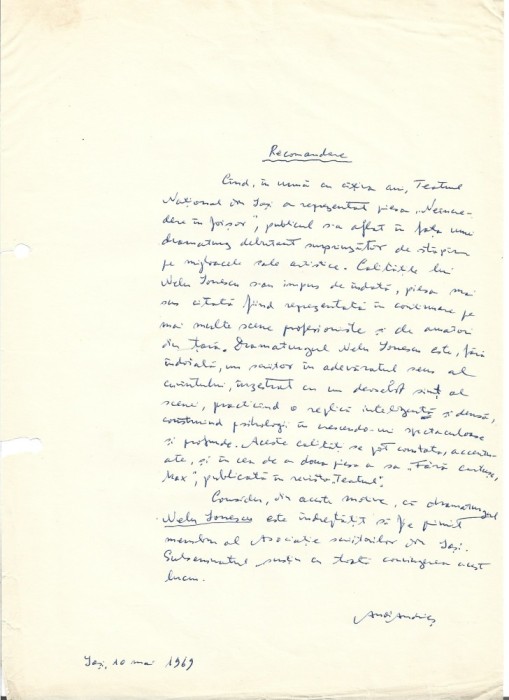 Recomandare
Când, în urmă cu câțiva ani, Teatrul
Național din Iași a reprezentat piesa „Neîncre-
dere în foișor”, publicul s-a aflat în fața unui
dramaturg debutant surprinzător de stăpân
pe mijloacele sale artistice. Calitățile lui
Nelu Ionescu s-au impus de îndată, piesa mai
sus citată fiind reprezentată în continuare pe
mai multe scene profesioniste și de amatori
din țară. Dramaturgul Nelu Ionescu este, fără
îndoială, un scriitor în adevăratul sens al
cuvântului, înzestrat cu un deosebit simț al
scenei, practicând o replică inteligentă și densă,
construind psihologii în crescendo-uri spectaculoase
și profunde. Aceste calități se pot constata, accentu-
ate, și în cea de a doua piesă a sa „Fără cartușe,
Max”, publicată în revista „Teatrul”.
Consider, din aceste motive, că dramaturgul
Nelu Ionescu este îndreptățit să fie primit
membru al Asociației scriitorilor din Iași.
Subsemnatul susțin cu toată convingerea acest
lucru.
Andi Andrieș
Iași, 10 mai 1969